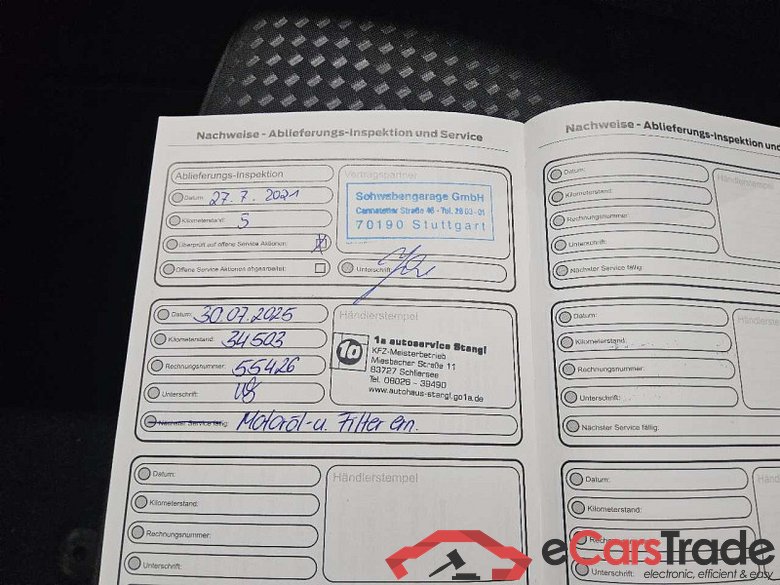 Nachweise - Ablieferungs-Inspektion und Service
Ablieferungs-Inspektion
Datum: 27.7.2021
Kilometerstand: 5
Überprüft auf offene Service Aktionen:
Offene Service Aktionen abgearbeitet:
Vertragspartner
Schwabengarage GmbH
Cannstatter Straße 46 - Tel. 28 03-01
70190 Stuttgart
Unterschrift:
Datum: 30.07.2025
Kilometerstand: 34503
Rechnungsnummer: 55426
Unterschrift:
Nächster Service fällig: Motoröl-u. Filter ern.
Händlerstempel
1a autoservice Stangl
KFZ-Meisterbetrieb
Miesbacher Straße 11
83727 Schliersee
Tel. 08026 - 39490
www.autohaus-stangl.go1a.de
Datum:
Kilometerstand:
Rechnungsnummer:
Unterschrift:
Händlerstempel
Nachweise - Ablieferungs-Inspektion und
Datum:
Kilometerstand:
Rechnungsnummer:
Unterschrift:
Nächster Service fällig:
Händlerstempel
Datum:
Kilometerstand:
Rechnungsnummer:
Unterschrift:
Nächster Service fällig:
Datum:
Kilometerstand:
Unterschrift:
eCarsTrade
electronic, efficient & easy